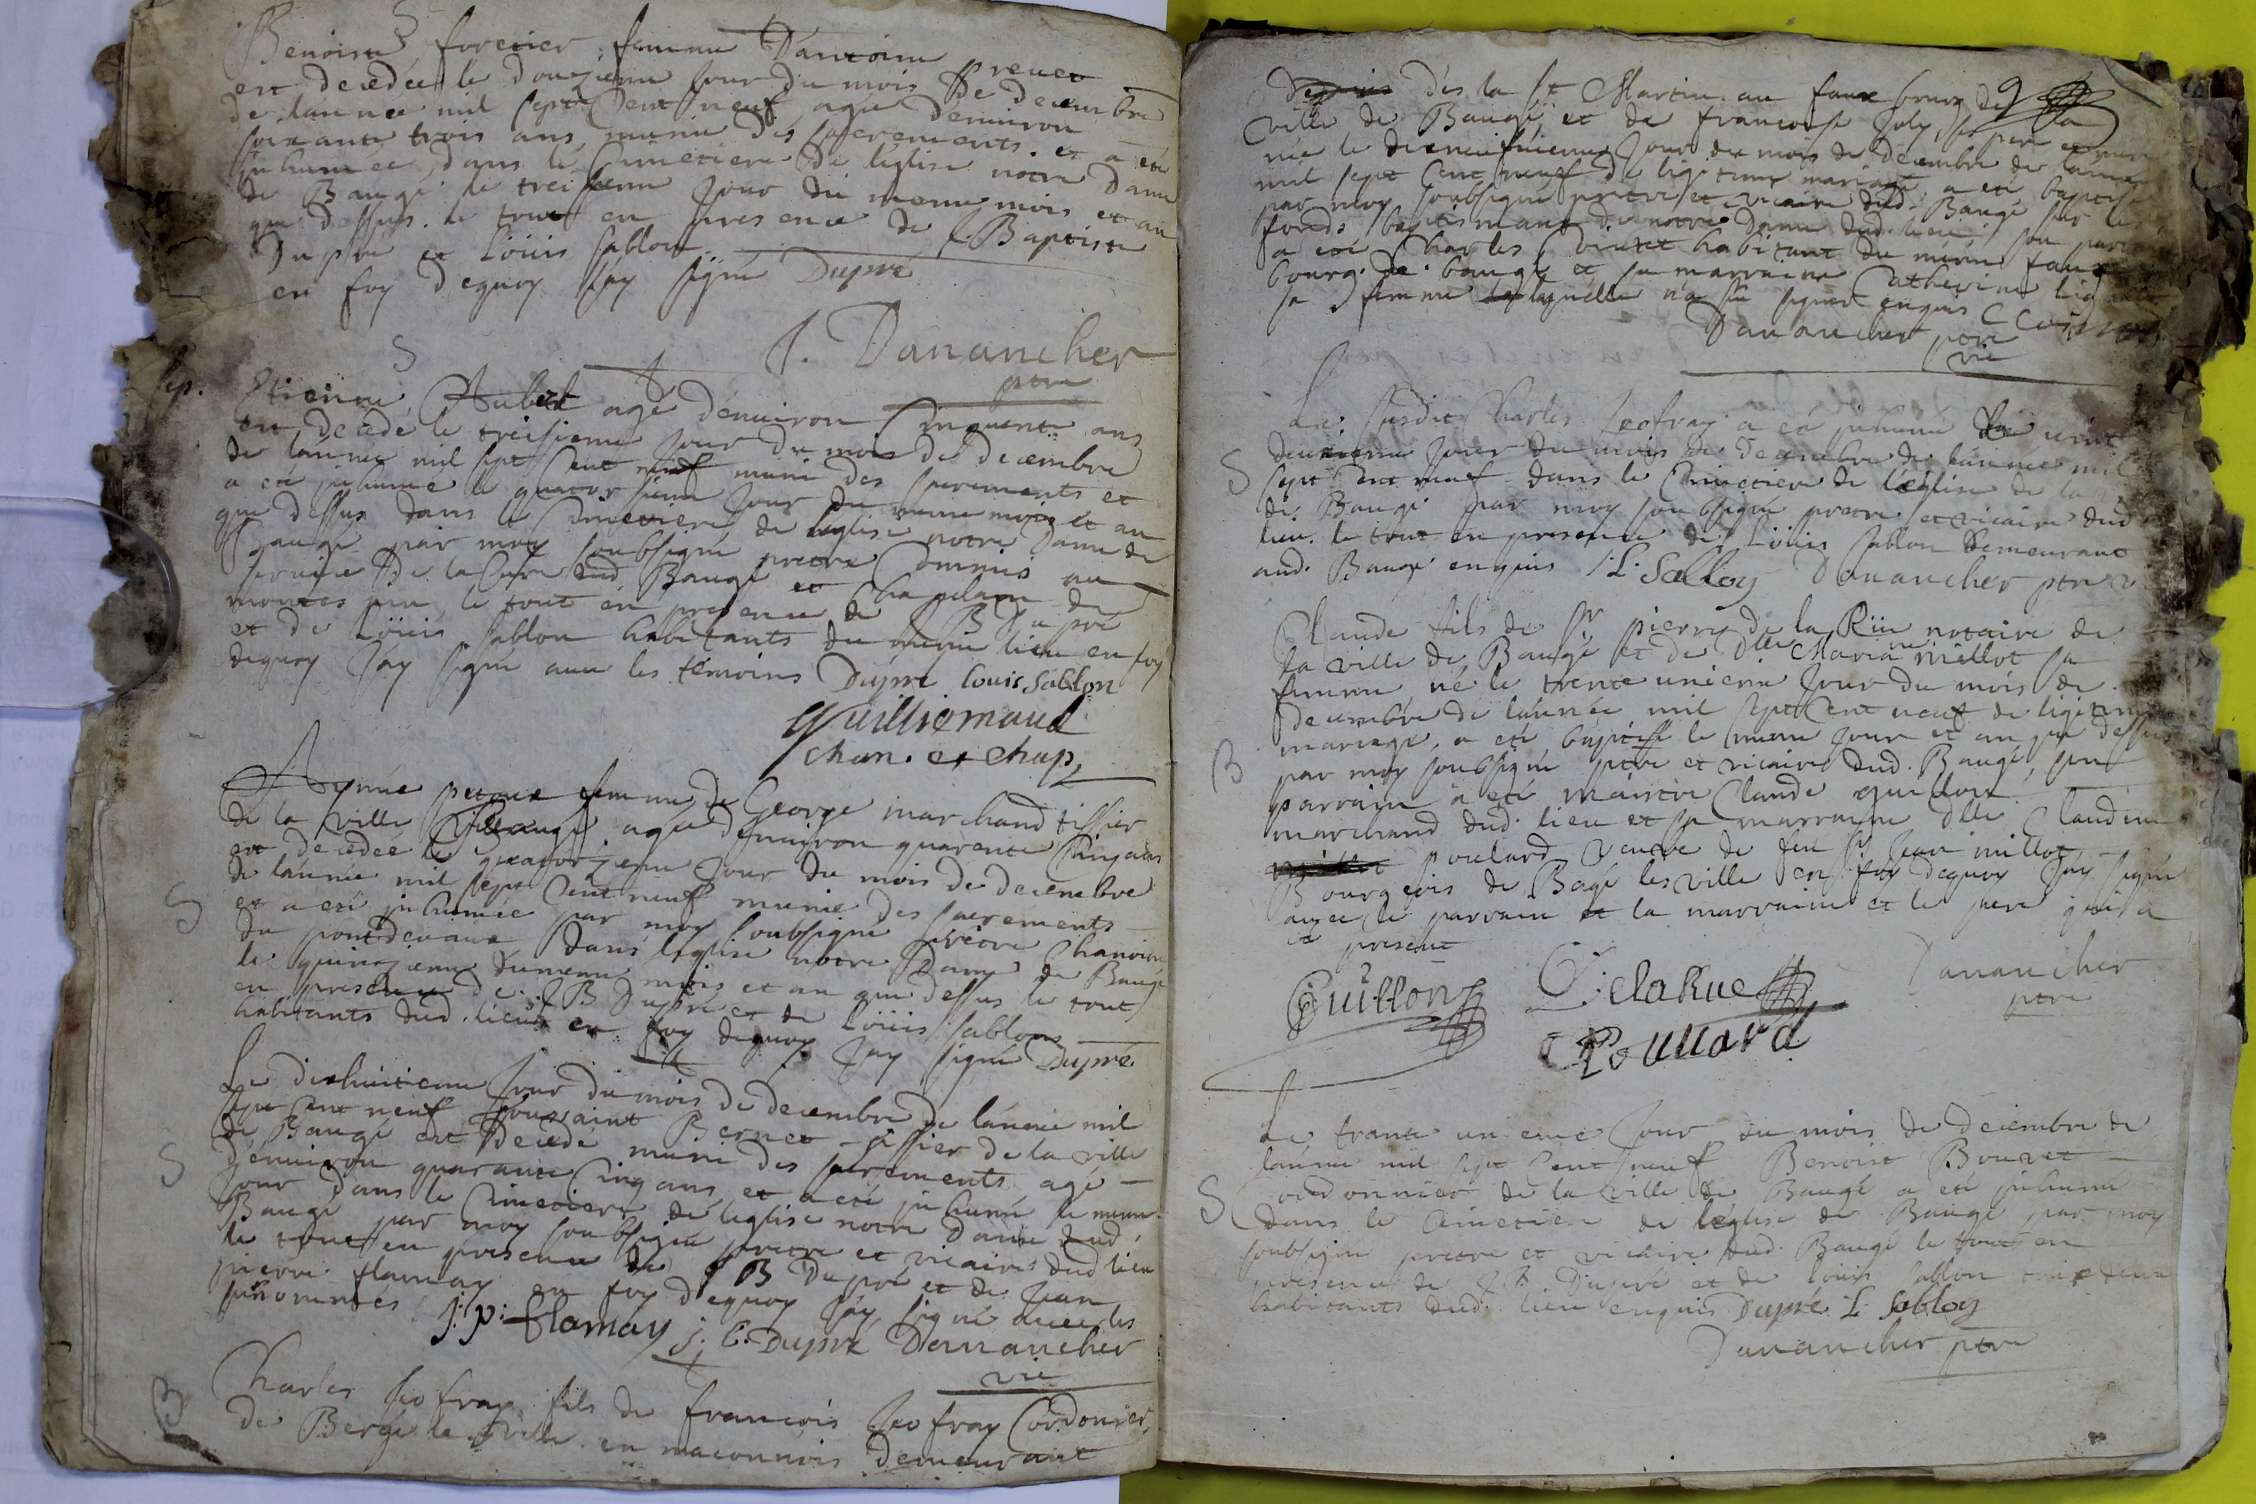 Benoiste foretier femme D'antoine
prevet
est decedée le douzieme jour du mois de decembre
de l'année mil sept cent neuf agée d'environ
soixante trois ans, munie des sacrements et a eté
inhumée dans le Cimetiere de l'eglise notre Dame
de Baugé le treisieme jour du meme mois et an
que dessus. le tout en presence de J. Baptiste
Dupré et Loüis sablon
en foy dequoy j'ay signé Dupré
J. Danancher
ptre
Sep.
S
Etienne Aubert agé d'enuiron Cinquente ans
est decedé le treisieme jour du mois de decembre
de l'année mil sept cent neuf muni des sacrements et
a eté inhumé le quatorsieme jour du meme mois et an
que dessus dans le Cimetiere de l'eglise notre Dame de
Baugé par moy soubsigné pretre Commis au
seruice de la Cure dud. Baugé et Chapelain de
le tout en presence de J B Dupré
et de Loüis sablon habitants du meme lieu en foy
dequoy j'ay signé auec les témoins Dupré louis sablon
Guilliemaud
chan. et chap.
Aymée femme de George marchand tissier
de la ville de Baugé agée d'enuiron quarente Cinq ans
est decedée le quatorzieme jour du mois de decembre
de l'année mil sept cent neuf munie des sacrements
S
et a eté inhumée par moy soubsigné pretre Chanoine
du pontdevaux dans l'eglise notre Dame de Baugé
le quinzieme du meme mois et an que dessus le tout
en presence de J B Dupré et de Loüis sablon
habitants dud. lieu en foy dequoy j'ay signé Dupré
Le dixhuitieme jour du mois de decembre de l'année mil
sept cent neuf toussaint Bernet tissier de la ville
S
de Baugé est decedé muni des sacrements agé
d'enuiron quarante Cinq ans et a eté inhumé le meme
jour dans le Cimetiere de l'eglise notre Dame dud.
Baugé par moy soubsigné pretre et vicaire dud lieu
le tout en presence de J B Dupré et de Jean
pierre flamay en foy dequoy j'ay signé auec les
susnommés j: p: flamay j. B. Dupré Danancher
vic
B
Charles Jeofray fils de francois Jeofray Cordonier
de Bergé la ville en maconnois demeurant
dés la st Martin au faux bourg de la
ville de Baugé et de francoise Joly ses pere et mere
née le dixneufuieme jour du mois de decembre de l'année
mil sept cent neuf de legitime mariage a eté baptisé
par moy soubsigné pretre et vicaire dud. Baugé sur les
fonds baptismaux de notre Dame dud. lieu son parrain
a eté Charles habitant du meme faux
bourg de baugé et sa marraine Catherine
sa femme laquelle n'a sçu signer enquis
Dananches ptre
vic
Le susdit Charles Jeofray a eté inhumé le vint
deuxieme jour du mois de decembre de l'année mil
S
sept cent neuf dans le Cimetiere de l'eglise de
de Baugé par moy soubsigné pretre et vicaire dud
lieu. le tout en presence de Loüis sablon demeurant
aud. Baugé enquis L. Sablon Dananches ptre v
Claude fils de Sr pierre de la Rüe notaire de
la ville de Baugé et de Dlle Maria millot sa
femme né le trente unieme jour du mois de
decembre de l'année mil sept cent neuf de legitime
mariage, a eté baptisé le meme jour et an que dessus
B
par moy soubsigné ptre et vicaire dud. Baugé, son
parrain a eté maistre Claude guillon
marchand dud. lieu et sa marraine Dlle Claudine
poulard veuve de feu sr Jean millot
Bourgeois de Bagé les ville en foy dequoy j'ay signé
avec le parrain et la marraine et le pere qui a
eté present
Guillon DelaRue Dananches
ptre
Poullard
Le trante un eme jour du mois de decembre de
l'année mil sept cent neuf Benoist Bouvet
cordonnier de la ville de Baugé a eté inhumé
S
dans le Cimetiere de l'eglise de Baugé, par moy
soubsigné pretre et vicaire dud. Baugé le tout en
presence de J B. Dupré et de Loüis sablon
habitants dud. lieu enquis Dupré L. Sablon
Dananches ptre